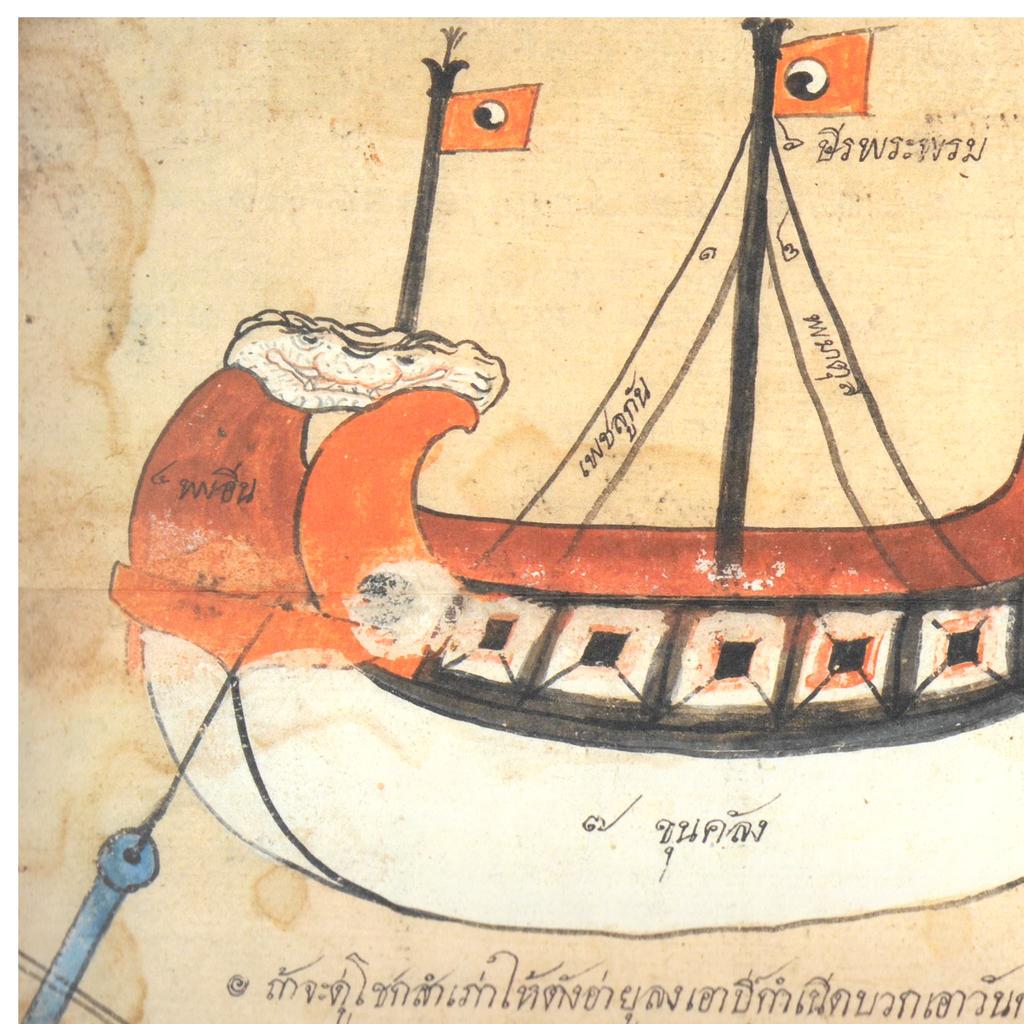 ๖ ศีรพระพรม
๑
๓
พมาตสี
เพชลูกัน
๔ พพอิน
๗ ขุนคลัง
๏ ถ้าจะดูโชกสำเภาให้ตั้งอ่ายุลงเอาปีกำเนีดบวกเอาวัน